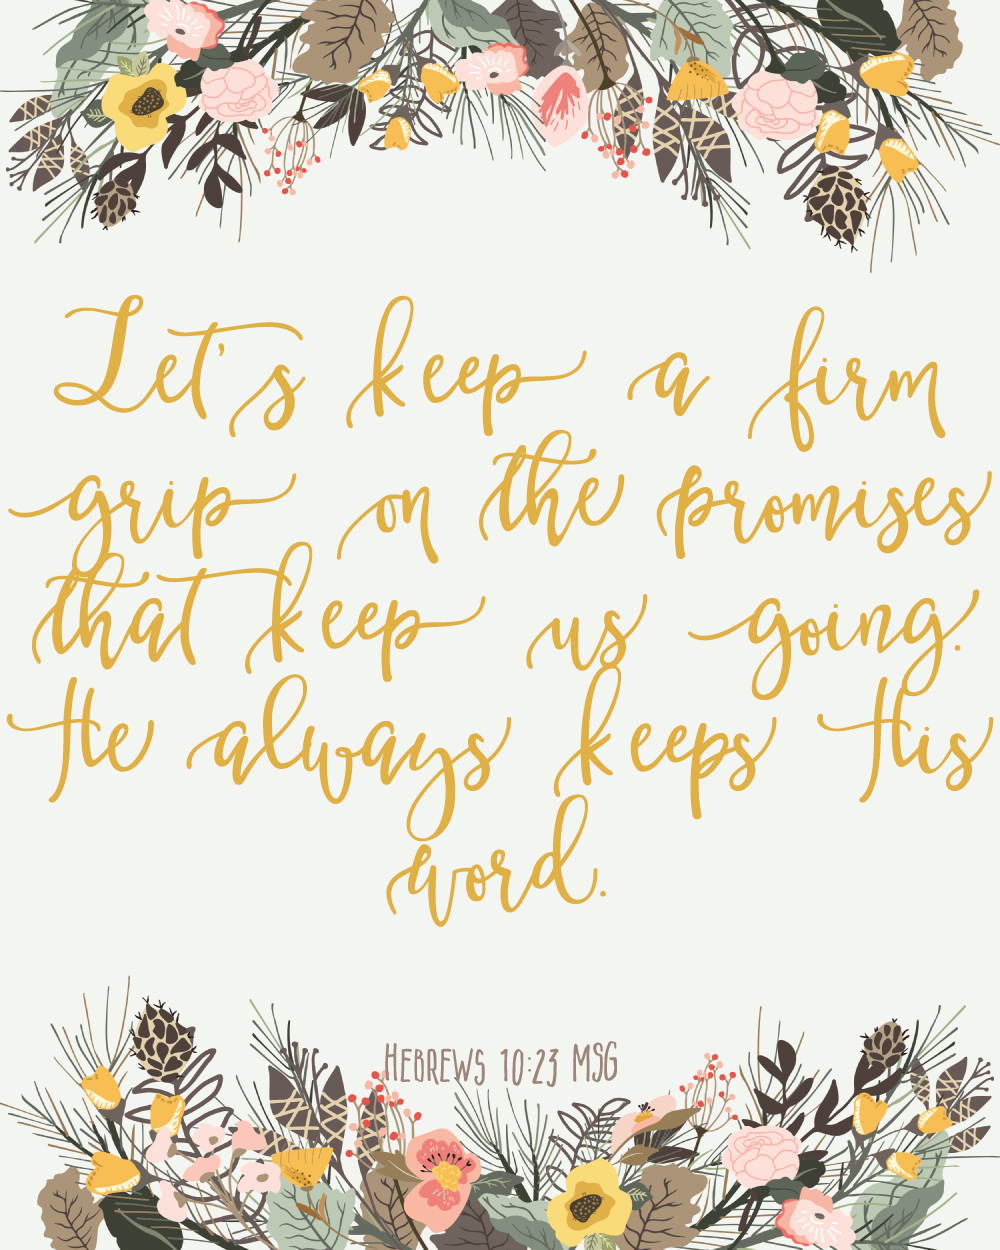 Let's keep a firm
grip on the promises
that keep us going.
He always keeps His
word.
HEBREWS 10:23 MSG